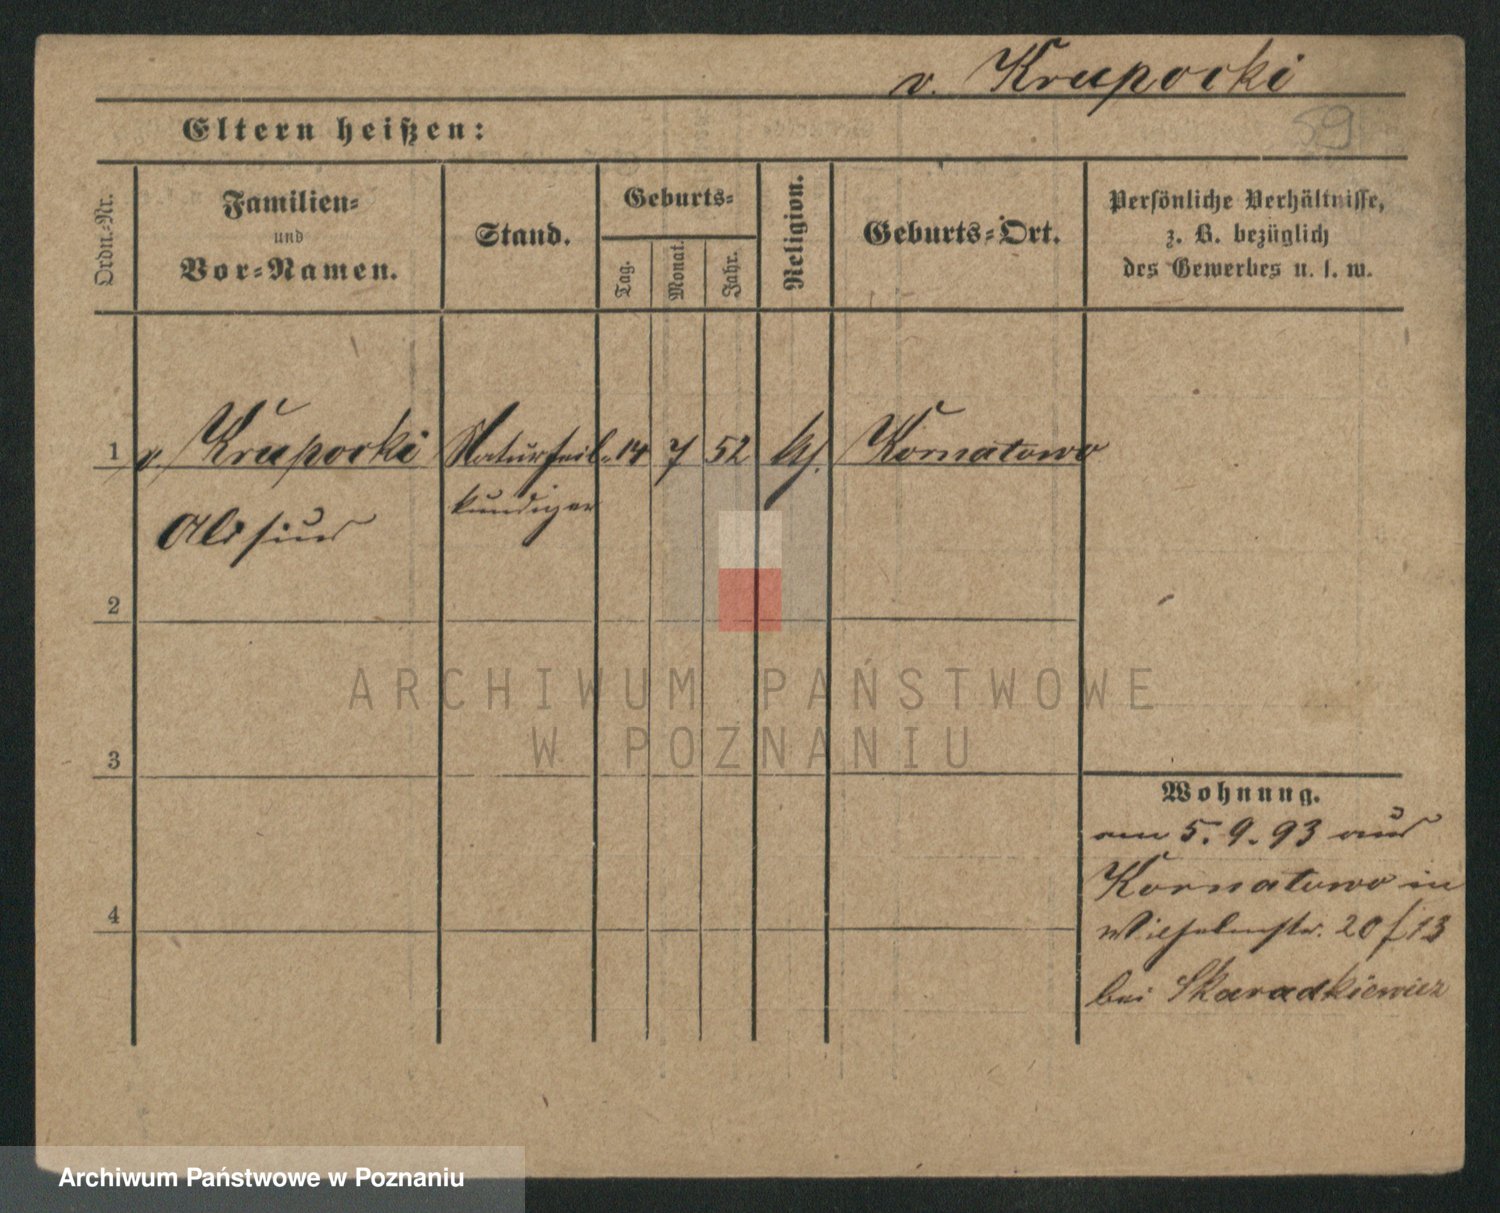 v. Krupocki
59
Eltern heißen:
Ordn.-Nr.
Familien-
und
Vor-Namen.
Stand.
Geburts-
Tag.
Monat.
Jahr.
Religion.
Geburts-Ort.
Persönliche Verhältnisse,
z. B. bezüglich
des Gewerbes u. s. w.
1 v. Krupocki Naturheil- 14 7 52 Kornatowo
kundiger
Aloisius
2
ARCHIWUM PAŃSTWOWE
W POZNANIU
3
Wohnung.
am 5.9.93 aus
Kornatowo in
4
Wilhelmstr. 20 f 13
bei Skaradkiewicz
Archiwum Państwowe w Poznaniu